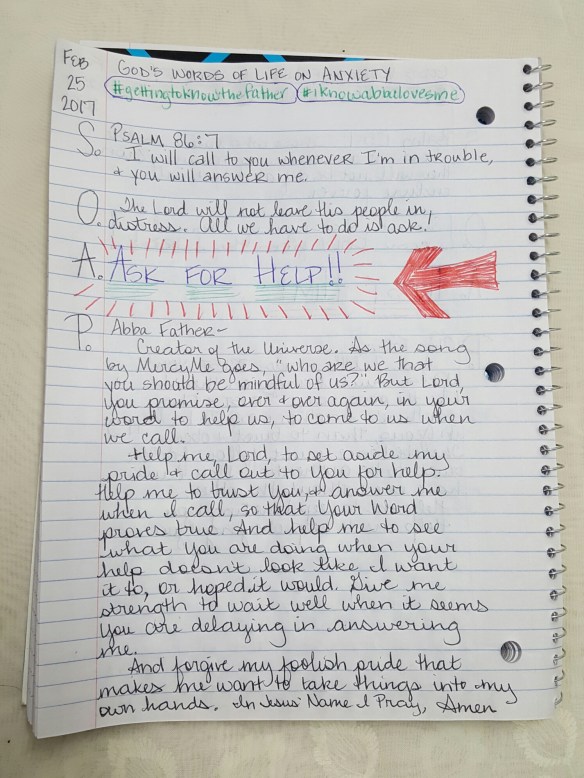 FEB
25
2017
GOD'S WORDS OF LIFE ON ANXIETY
#gettingtoknowthefather #iknowabbalovesme
S. PSALM 86:7
I will call to you whenever I'm in trouble,
+ you will answer me.
O. The Lord will not leave His people in
distress. All we have to do is ask.
A. ASK FOR HELP!!
P. Abba Father~
Creator of the Universe. As the song
by MercyMe goes, "who are we that
you should be mindful of us?" But Lord,
you promise, over + over again, in your
word to help us, to come to us when
we call.
Help me, Lord, to set aside my
pride + call out to You for help.
Help me to trust You, + answer me
when I call, so that Your Word
proves true. And help me to see
what You are doing when your
help doesn't look like I want
it to, or hoped it would. Give me
strength to wait well when it seems
you are delaying in answering
me.
And forgive my foolish pride that
makes me want to take things into my
own hands. In Jesus' Name I Pray, Amen